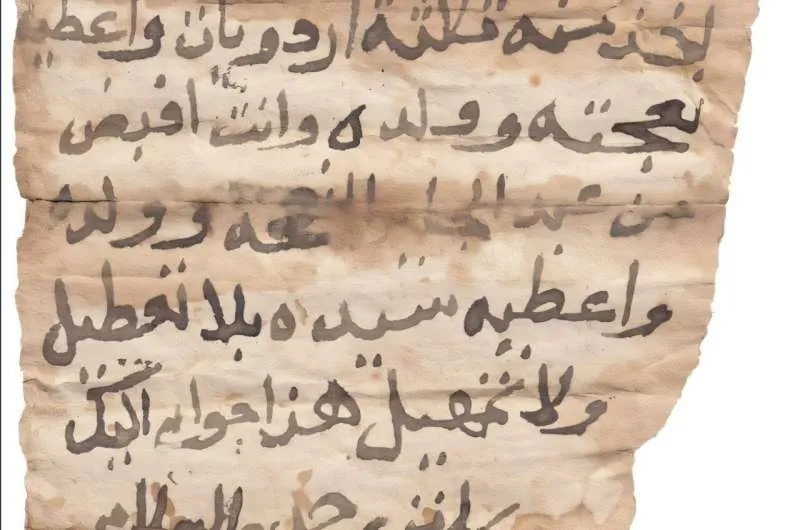 يخد منه تلتة اردويات واعطيه
نعجته وولده وانت اقبض
من عبد النعجه وولده
واعطيه سيده بلا تعطيل
ولا تمهيل هذا جوابي اليك
والسلام